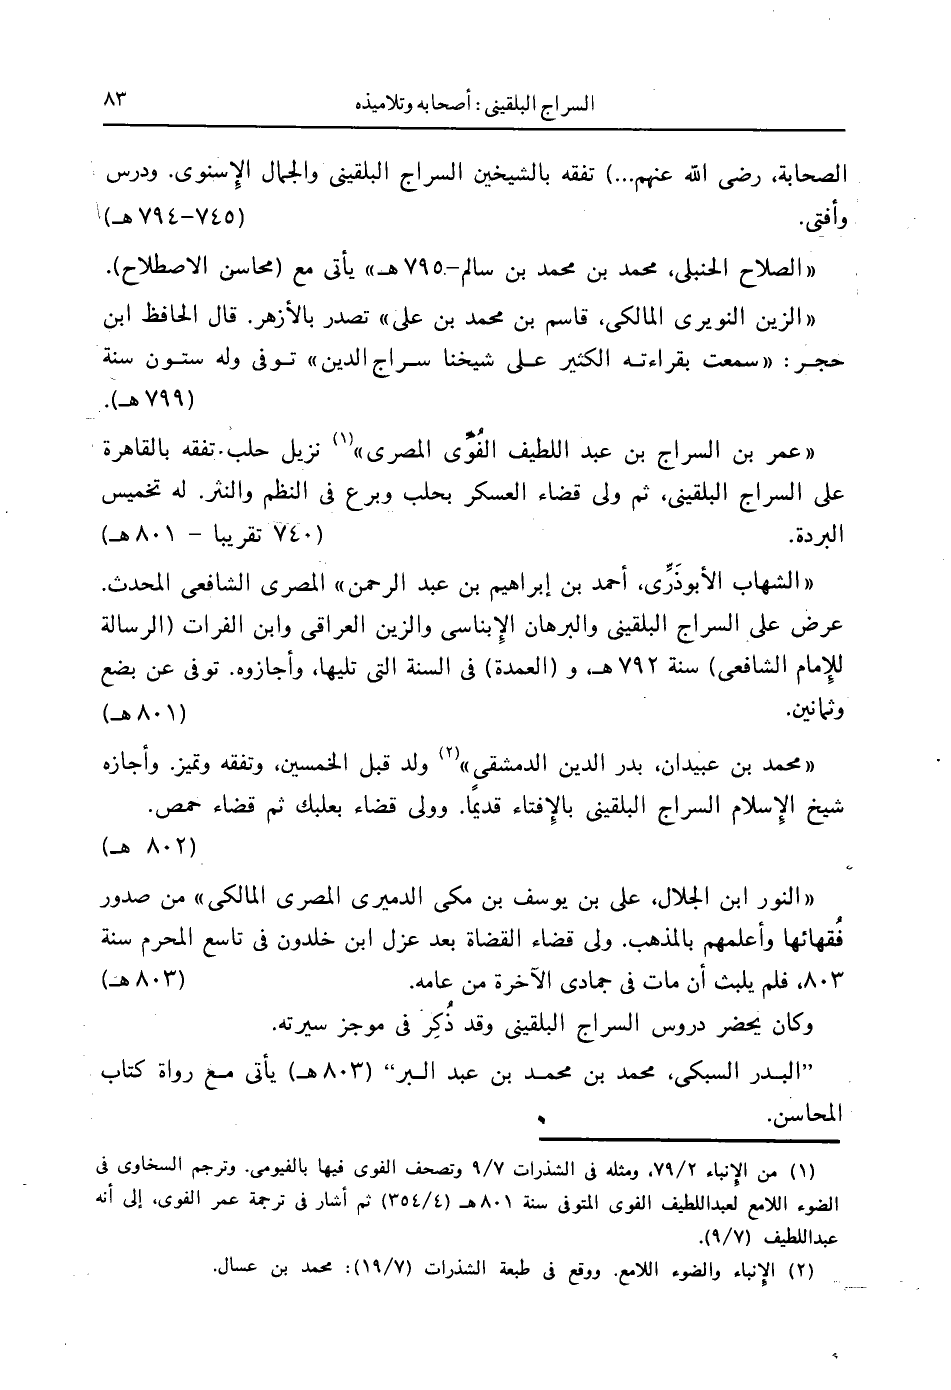 السراج البلقينى: أصحابه وتلاميذه ٨٣
الصحابة، رضى الله عنهم...) تفقه بالشيخين السراج البلقينى والجمال الإسنوى. ودرس
وأفتى. (٧٤٥-٧٩٤ هـ)
«الصلاح الحنبلى، محمد بن محمد بن سالم-٧٩٥ هـ» يأتى مع (محاسن الاصطلاح).
«الزين النويرى المالكى، قاسم بن محمد بن على» تصدر بالأزهر. قال الحافظ ابن
حجر: «سمعت بقراءته الكثير على شيخنا سراج الدين» توفى وله ستون سنة
(٧٩٩ هـ).
«عمر بن السراج بن عبد اللطيف الفُوِّى المصرى»(١) نزيل حلب. تفقه بالقاهرة
على السراج البلقينى، ثم ولى قضاء العسكر بحلب وبرع فى النظم والنثر. له تخميس
البردة. (٧٤٠ تقريبا - ٨٠١ هـ)
«الشهاب الأبوذَرِّى، أحمد بن إبراهيم بن عبد الرحمن» المصرى الشافعى المحدث.
عرض على السراج البلقينى والبرهان الإبناسى والزين العراقى وابن الفرات (الرسالة
للإمام الشافعى) سنة ٧٩٢ هـ، و (العمدة) فى السنة التى تليها، وأجازوه. توفى عن بضع
وثمانين. (٨٠١ هـ)
«محمد بن عبيدان، بدر الدين الدمشقى»(٢) ولد قبل الخمسين، وتفقه وتميز. وأجازه
شيخ الإسلام السراج البلقينى بالإفتاء قديمًا. وولى قضاء بعلبك ثم قضاء حمص.
(٨٠٢ هـ)
«النور ابن الجلال، على بن يوسف بن مكى الدميرى المصرى المالكى» من صدور
فُقهائها وأعلمهم بالمذهب. ولى قضاء القضاة بعد عزل ابن خلدون فى تاسع المحرم سنة
٨٠٣، فلم يلبث أن مات فى جمادى الآخرة من عامه. (٨٠٣ هـ)
وكان يحضر دروس السراج البلقينى وقد ذُكِر فى موجز سيرته.
"البدر السبكى، محمد بن محمد بن عبد البر" (٨٠٣ هـ) يأتى مع رواة كتاب
المحاسن.
(١) من الإنباء ٧٩/٢، ومثله فى الشذرات ٩/٧ وتصحف الفوى فيها بالفيومى. وترجم السخاوى فى
الضوء اللامع لعبداللطيف الفوى المتوفى سنة ٨٠١ هـ (٣٥٤/٤) ثم أشار فى ترجمة عمر الفوى، إلى أنه
عبداللطيف (٩/٧).
(٢) الإنباء والضوء اللامع. ووقع فى طبعة الشذرات (١٩/٧): محمد بن عسال.